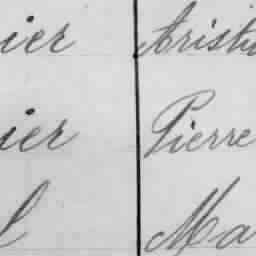 ier Aristi
ier Pierre
l Ma